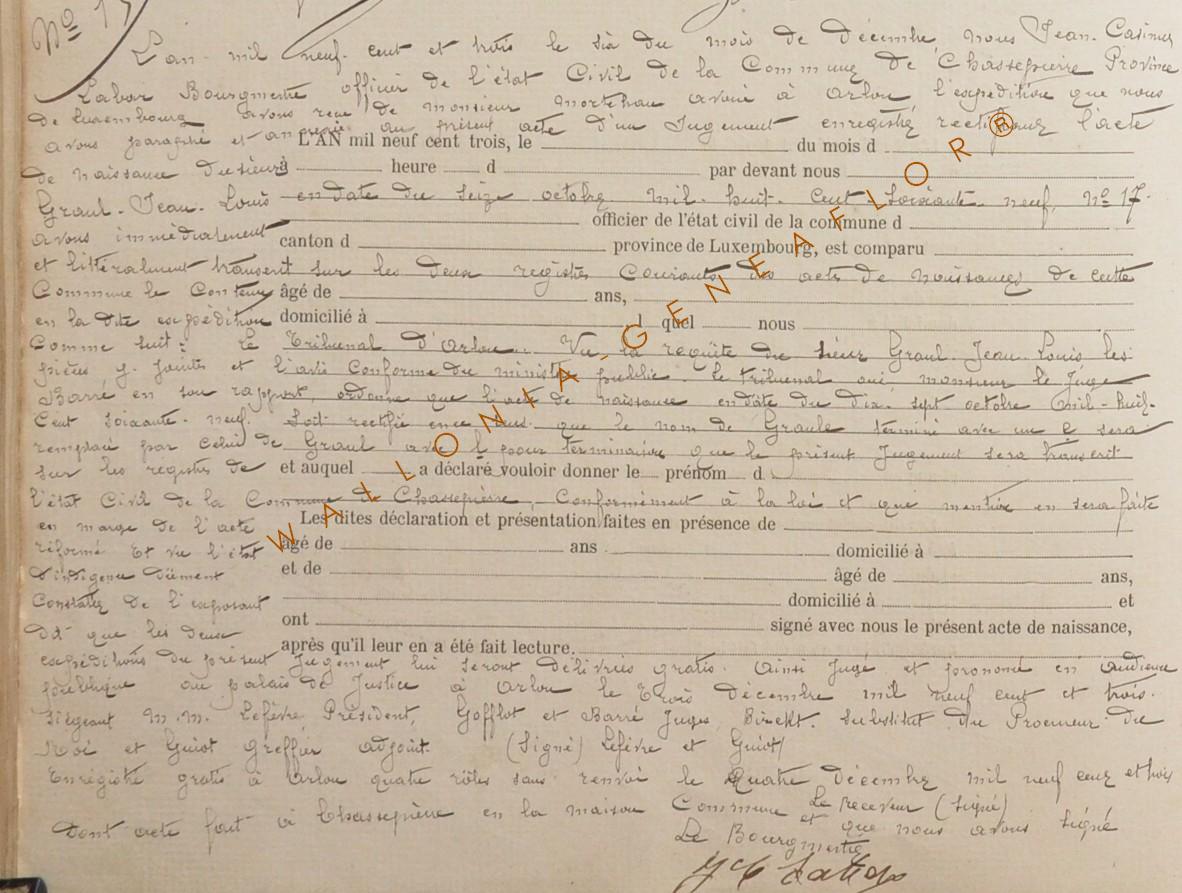 No 1
L'an mil neuf cent et trois le six du mois de Décembre, nous Jean-Casimir
Labar Bourgmestre officier de l'état Civil de la Commune de Chassepierre Province
de Luxembourg avons reçu de monsieur Mortehan avoué à Arlon l'expédition que nous
avons paraphé et au présent acte d'un Jugement enregistré rectifiant l'acte
L'AN mil neuf cent trois, le du mois d
de naissance du sieur
à heure d par devant nous
Graul-Jean-Louis en date du seize octobre mil-huit-Cent Soixante neuf, No 17.
officier de l'état civil de la commune d
avons immédiatement
canton d province de Luxembourg, est comparu
et littéralement transcrit sur les deux registres Courants des acts de naissances de cette
Commune le Contenu
âgé de ans,
en la dite expédition
domicilié à l quel nous
Comme suit: Le Tribunal d'Arlon. Vu la requête du sieur Graul-Jean-Louis les
pièces y jointes et l'avis Conforme du ministère public. Le tribunal oui, monsieur le Juge
Barré en son rapport, ordonne que l'acte de naissance en date du Dix-sept octobre mil-huit-
Cent Soixante-neuf. Soit rectifié en ce sens que le nom de Graule terminé avec un e sera
remplacé par celui de Graul avec l pour terminaison que le présent Jugement sera transcrit
sur les registres de
et auquel a déclaré vouloir donner le prénom d
l'état Civil de la Commune de Chassepierre, Conformément à la loi et que mention en sera faite
en marge de l'acte
Les dites déclaration et présentation faites en présence de
réformé. Et vu l'état
âgé de ans domicilié à
d'indigence dûement
et de âgé de ans,
Constatée de l'exposant
domicilié à et
Dit que les deux
ont signé avec nous le présent acte de naissance,
après qu'il leur en a été fait lecture.
expéditions du présent Jugement lui seront délivrées gratis. Ainsi Jugé et prononcé en Audience
publique au palais de Justice à Arlon le Trois Décembre mil neuf cent et trois.
Siégeant M.M. Lefèvre Président, Gofflot et Barré Juges, Substitut du Procureur du
Roi et Guiot Greffier adjoint. (Signé) Lefèvre et Guiot/
Enregistré gratis à Arlon quatre rôles sans renvoi le Quatre Décembre mil neuf cent et trois
Le receveur (signé)
Dont acte fait à Chassepierre en la maison Commune et que nous avons signé
Le Bourgmestre
WALLONIA-GENEAFLOR®